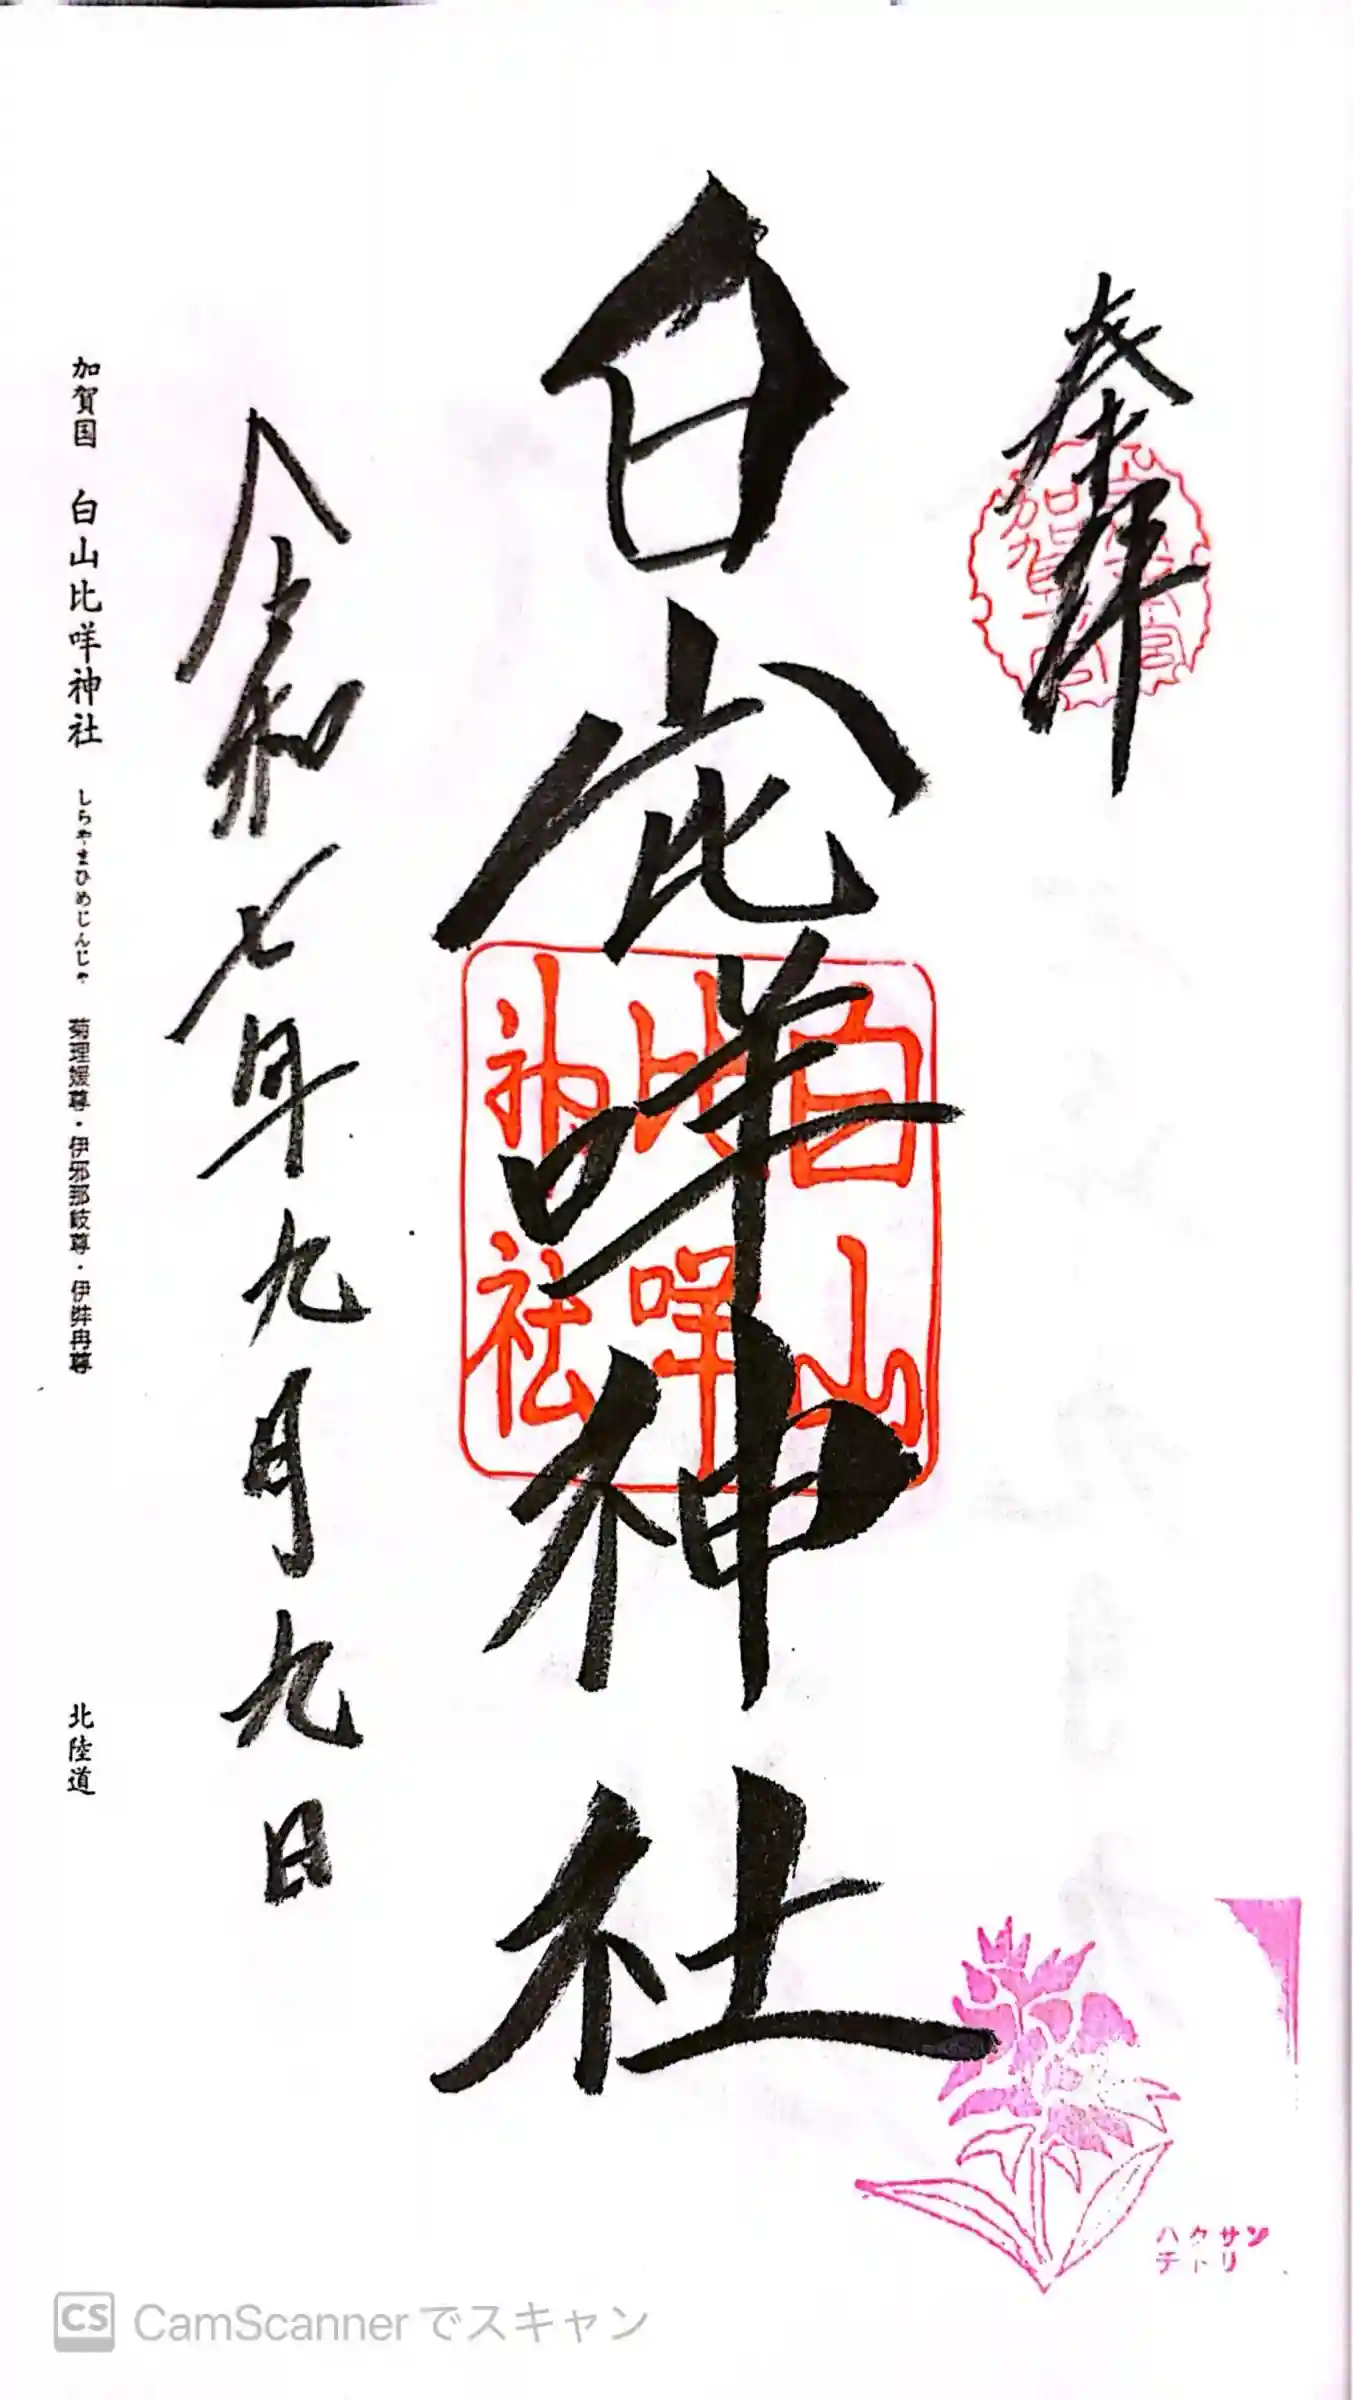 奉拝
白山比咩神社
白山
比咩
神社
令和七年九月九日
加賀国 白山比咩神社 しらやまひめじんじゃ 菊理媛尊・伊邪那岐尊・伊弉冉尊 北陸道
ハクサン
チドリ
CS CamScannerでスキャン